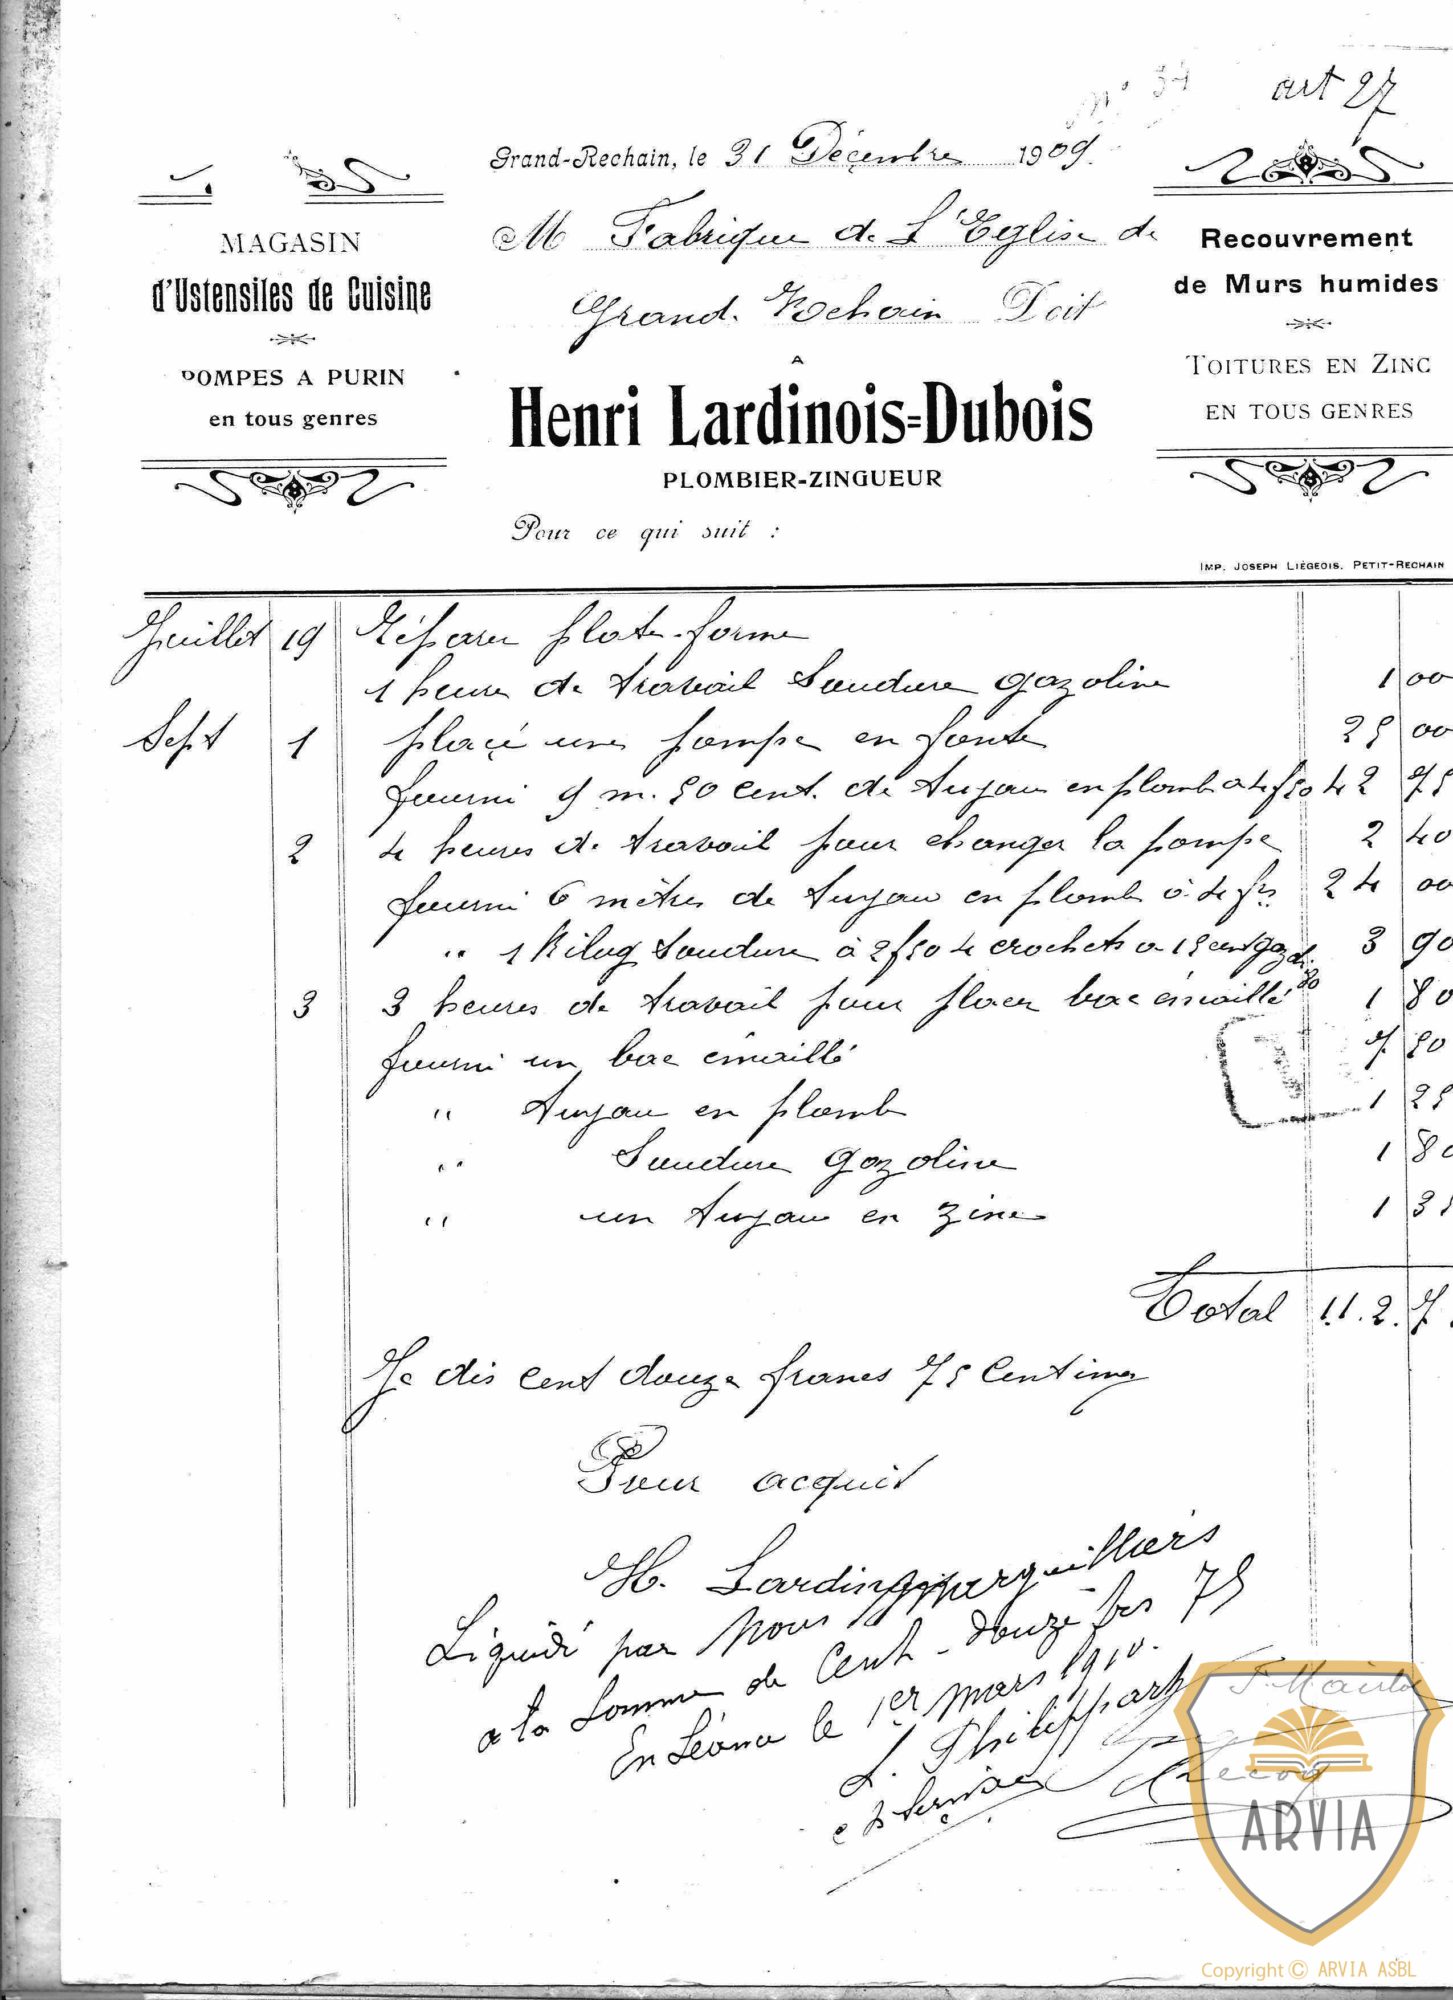 N° 34 art 27
Grand-Rechain, le 31 Décembre 1909.
M Fabrique de L'Eglise de
Grand-Rechain Doit
A
Henri Lardinois=Dubois
PLOMBIER-ZINGUEUR
Pour ce qui suit :
MAGASIN
d'Ustensiles de Cuisine
POMPES A PURIN
en tous genres
Recouvrement
de Murs humides
TOITURES EN ZINC
EN TOUS GENRES
IMP. JOSEPH LIÉGEOIS. PETIT-RECHAIN
Juillet 19 Réparer plate-forme
1 heure de travail Soudure gazoline 1 00
Sept 1 placé une pompe en fonte 25 00
fourni 9 m. 50 cent. de tuyau en plomb a 4f50 42 75
2 4 heures de travail pour changer la pompe 2 40
fourni 6 mètres de tuyau en plomb à 4 frs 24 00
" 1 Kilog Soudure à 2f50 4 crochets a 15 cent 3 90
3 3 heures de travail pour placer bac émaillé 1 80
fourni un bac émaillé 7 50
" tuyau en plomb 1 25
" Soudure gazoline 1 80
" un tuyau en zinc 1 35
Total 112 7
Je dis cent douze francs 75 Centimes
Pour acquit
H. Lardinois
Liquidé par nous marguilliers
a la Somme de Cent-douze frs 75
En Séance le 1er mars 1910.
L. Philippart
ARVIA
Copyright © ARVIA ASBL